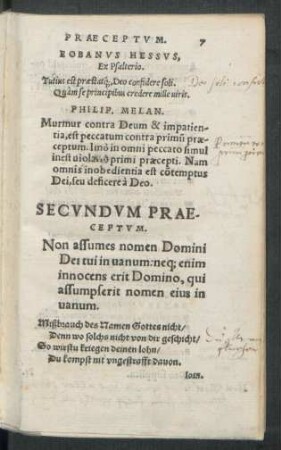 PRAECEPTVM. 7
EOBANVS HESSVS,
Ex Psalterio.
Tutius est præstatq́, Deo confidere soli,
Quàm se principibus credere mille uiris.
PHILIP. MELAN.
Murmur contra Deum & impatien-
tia, est peccatum contra primũ præ-
ceptum. Imò in omni peccato simul
inest uiolatiõ primi præcepti. Nam
omnis inobedientia est cõtemptus
Dei, seu deficere à Deo.
SECVNDVM PRAE-
CEPTVM.
Non assumes nomen Domini
Dei tui in uanum: neq; enim
innocens erit Domino, qui
assumpserit nomen eius in
uanum.
Mißbrauch des Namen Gottes nicht/
Denn wo solchs nicht von dir geschicht/
So wirstu kriegen deinen lohn/
Du kompst nit vngestrafft dauon.
Ioan.